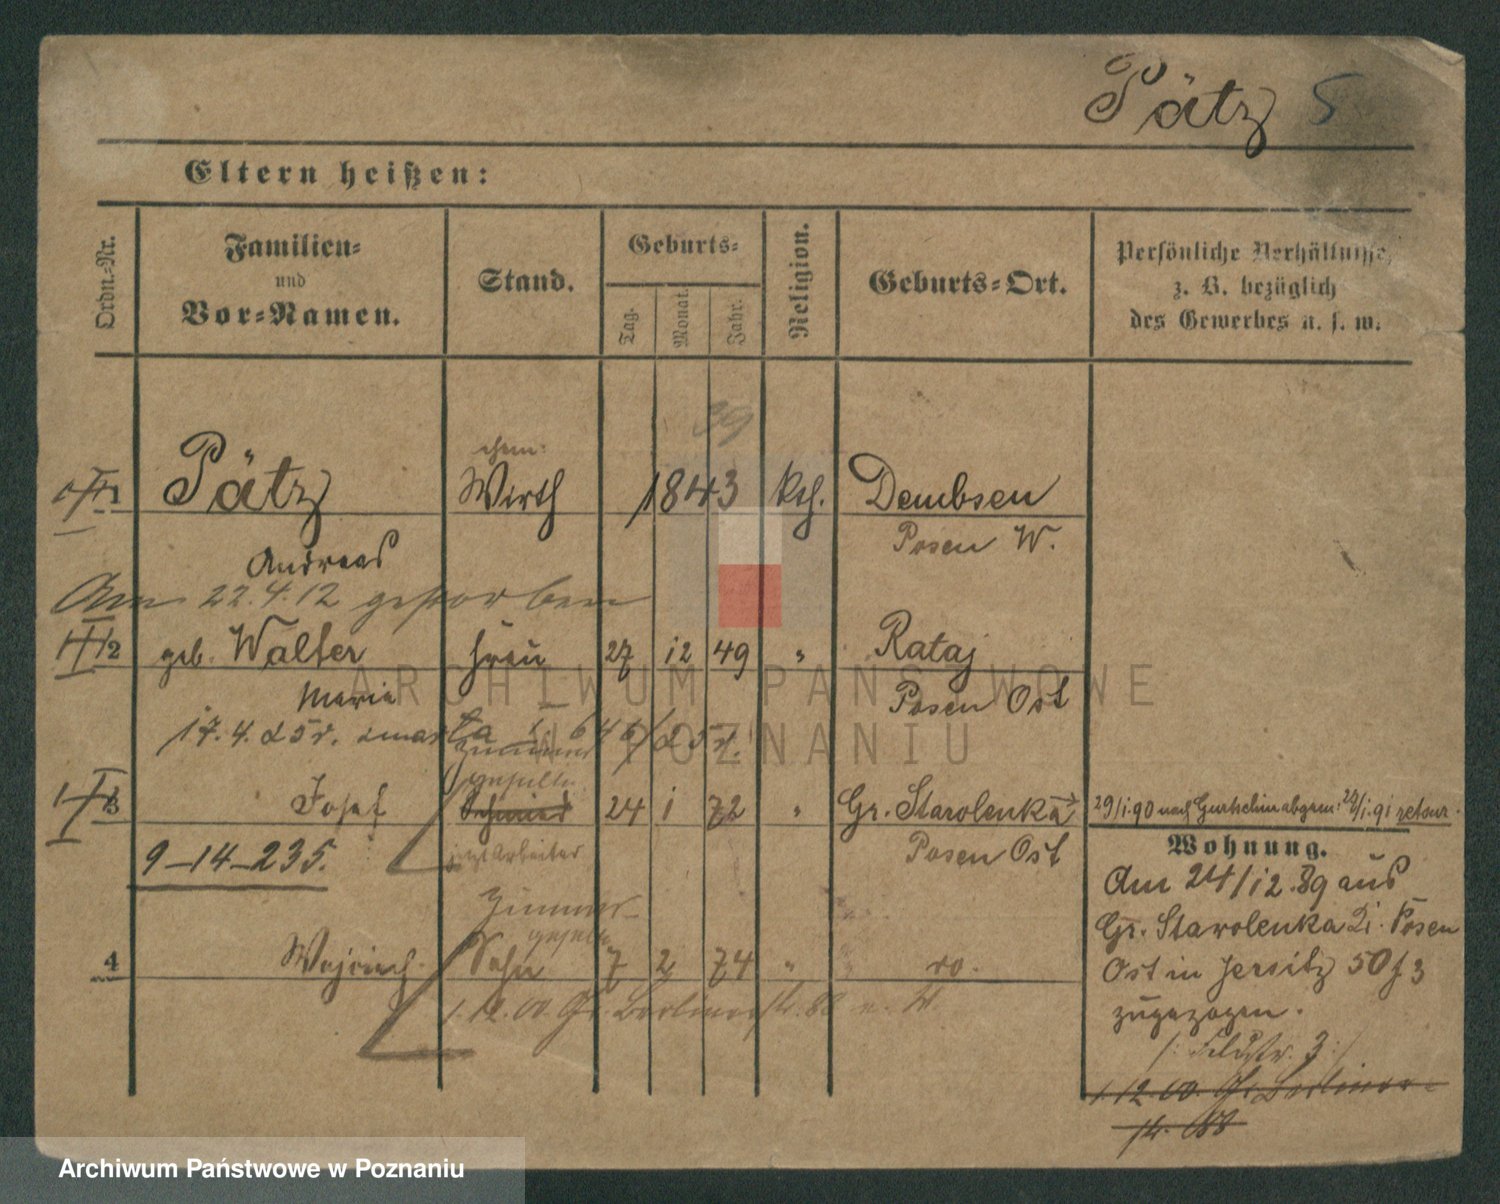 Pätz 5
Eltern heißen:
Ordn.-Nr.
Familien-
und
Vor-Namen.
Stand.
Geburts-
Tag.
Monat.
Jahr.
Religion.
Geburts-Ort.
Persönliche Verhältnisse,
z. B. bezüglich
des Gewerbes u. s. w.
39
1 Pätz Wirth 1843 kth. Dembsen
Andreas Posen W.
Am 22.4.12 gestorben
2 geb. Walter Frau 27 12 49 " Rataj
Maria Posen Ost
17.4.25 r. zmarła
Zimmer
geselle
3 Josef Schmied 24 1 72 " Gr. Starolenka
29/1.90 nach Gurtschin abgem: 29/1.91 retour.
9–14–235. jetzt Arbeiter Posen Ost
Wohnung.
Am 24/12.89 aus
Gr. Starolenka Posen
Ost in Jersitz 50 f 3
zugezogen.
/: Feldstr. 3 :/
1.12.00. Gr. Berliner-
str. 88
Zimmer-
geselle
4 Wojciech. Sohn 7 2 74 " do.
1.12.00 Gr. Berlinerstr. 88
ARCHIWUM PAŃSTWOWE
W POZNANIU
Archiwum Państwowe w Poznaniu